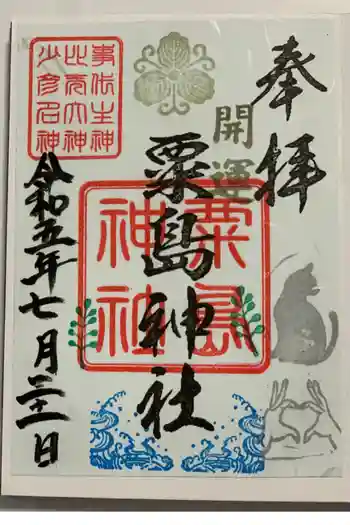 奉拝
開運
粟島神社
粟島
神社
事代主神
比売大神
少彦名神
令和五年七月二十一日